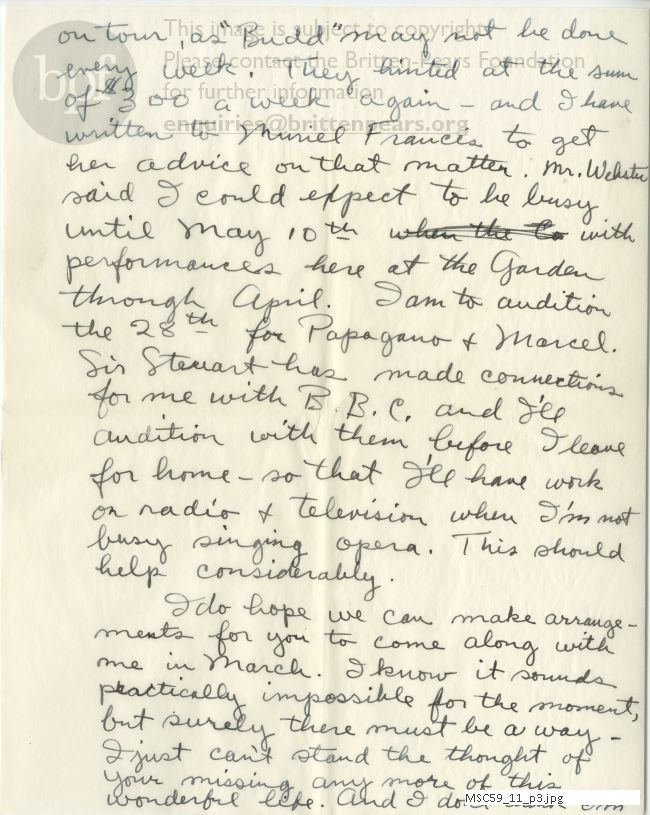 This image is subject to copyright.
Please contact the Britten-Pears Foundation
for further information
enquiries@brittenpears.org
bpf
on tour, as "Budd" may not be done
every week. They hinted at the sum
of $300 a week again – and I have
written to Muriel Francis to get
her advice on that matter. Mr. Webster
said I could expect to be busy
until May 10th when the Co with
performances here at the Garden
through April. I am to audition
the 28th for Papagano & Marcel.
Sir Steuart has made connections
for me with B.B.C. and I'll
audition with them before I leave
for home – so that I'll have work
on radio & television when I'm not
busy singing opera. This should
help considerably.
I do hope we can make arrange-
ments for you to come along with
me in March. I know it sounds
practically impossible for the moment,
but surely there must be a way –
I just can't stand the thought of
your missing any more of this
wonderful life. And I don't
MSC59_11_p3.jpg